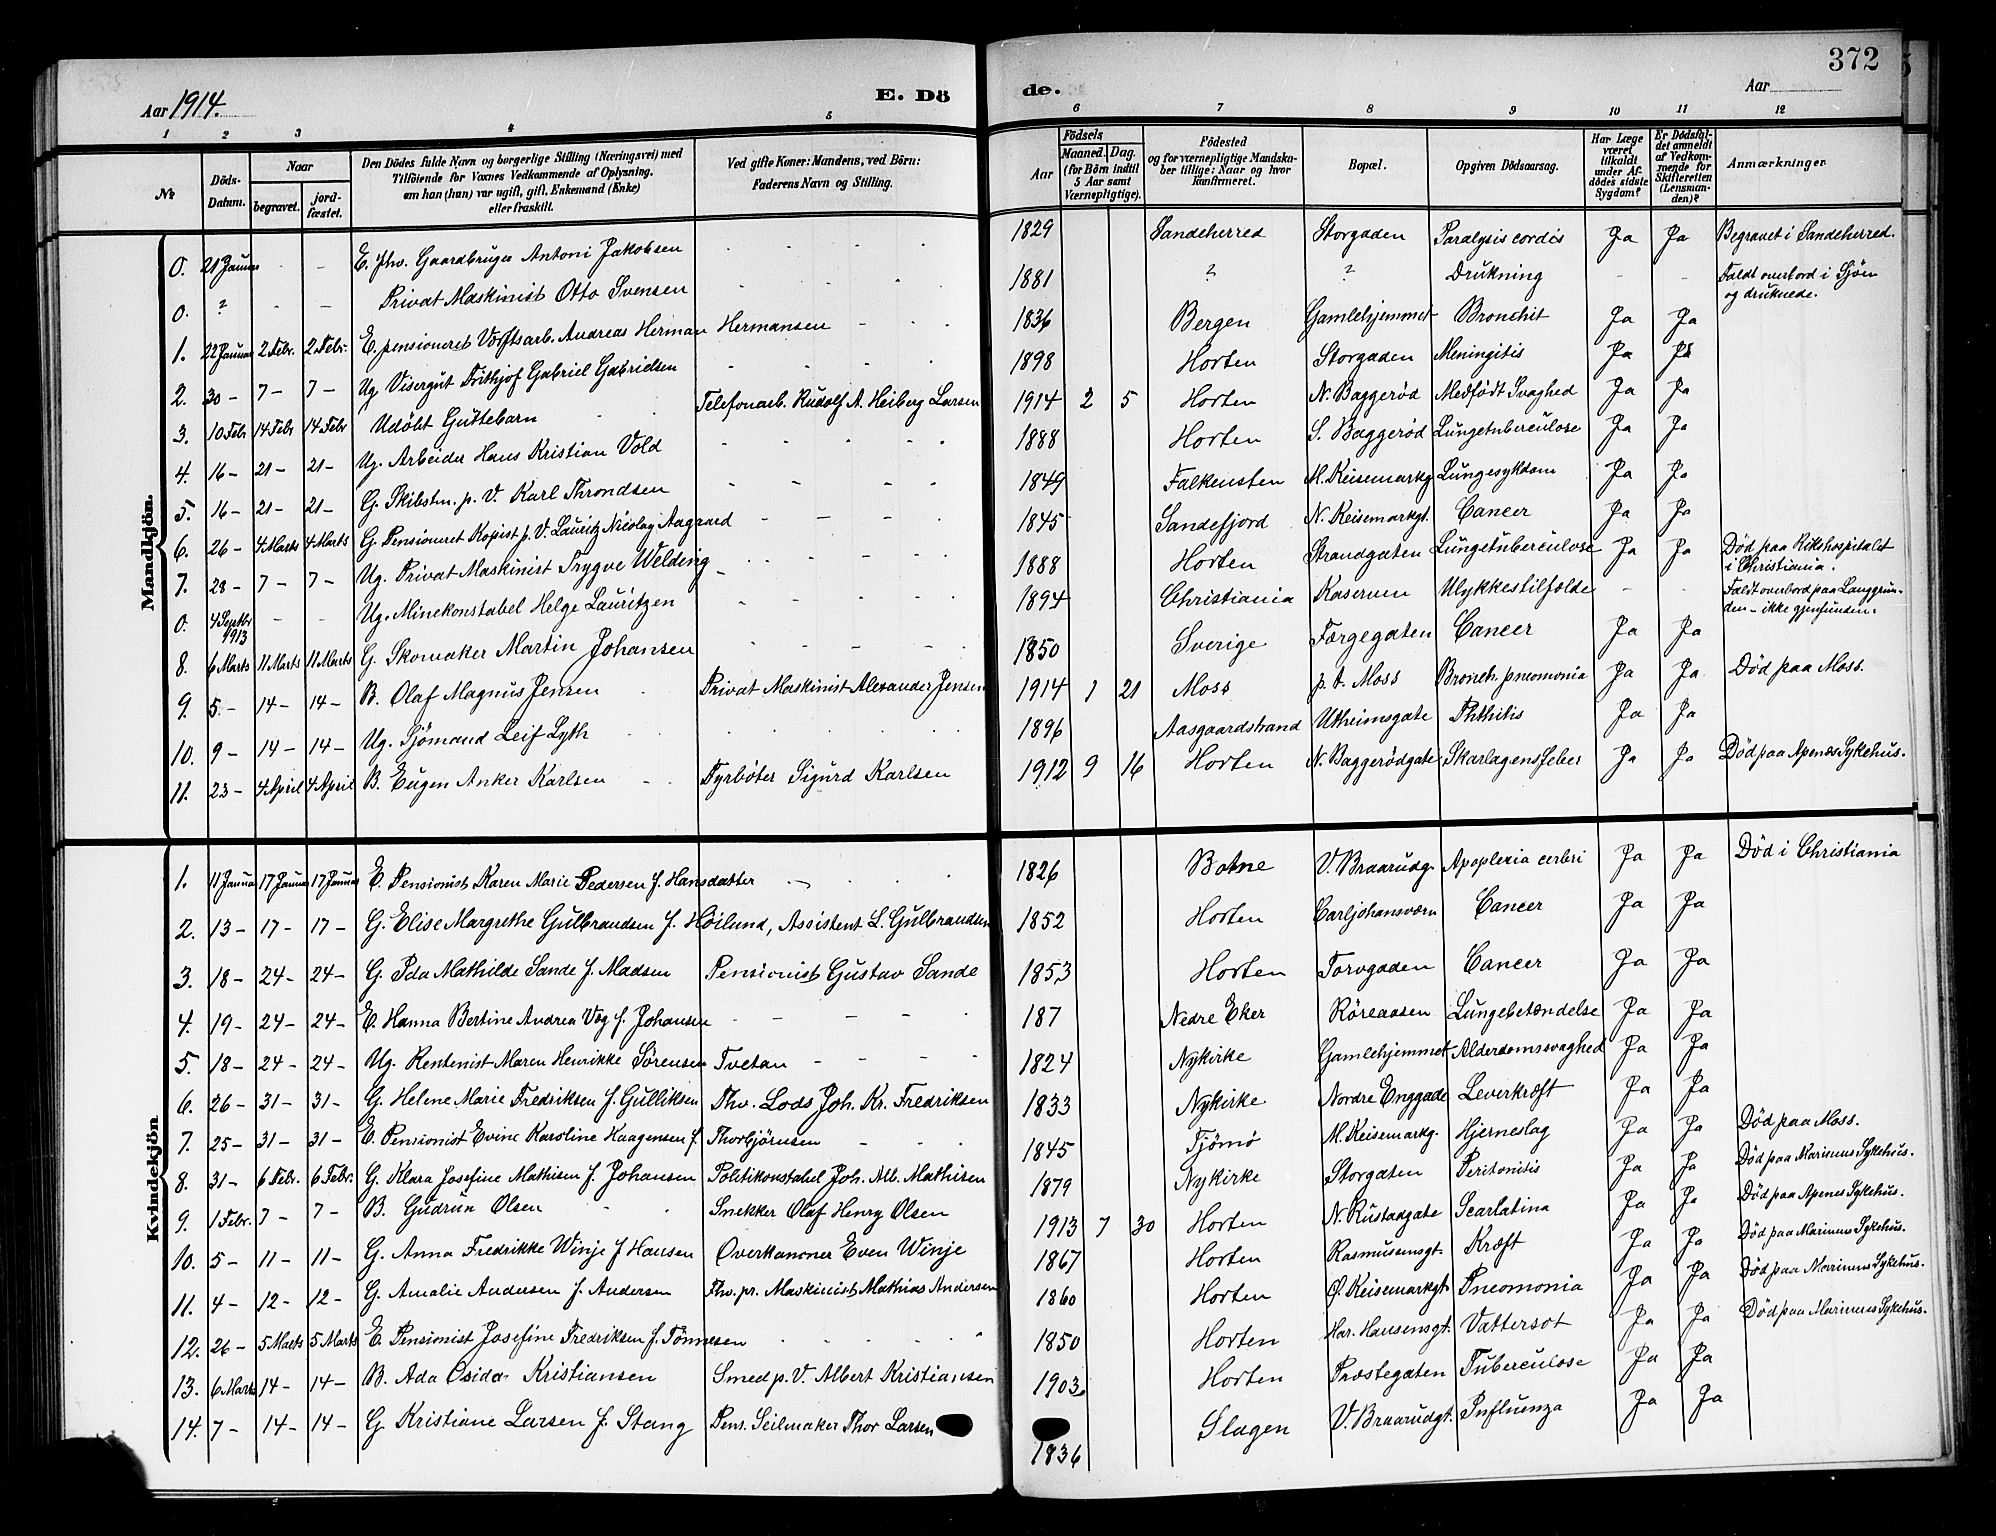 372
Aar 1914.
E. Dö
de.
Aar
1 2 3 4 5
6 7 8 9 10 11 12
№
Döds-Datum.
Naar
begravet. jord-fæstet.
Den Dödes fulde Navn og borgerlige Stilling (Næringsvei) med Tilföiende for Voxnes Vedkommende af Oplysning, om han (hun) var ugift, gift, Enkemand (Enke) eller fraskilt.
Ved gifte Koner: Mandens, ved Börn: Faderens Navn og Stilling.
Födsels
Aar
Maaned. Dag.
(for Börn indtil 5 Aar samt Værnepligtige).
Födested og for værnepligtige Mandskaber tillige: Naar og hvor konfirmeret.
Bopæl.
Opgiven Dödsaarsag.
Har Læge været tilkaldt under Afdödes sidste Sygdom?
Er Dödsfaldet anmeldt af Vedkommende for Skifteretten (Lensmanden)?
Anmærkninger
Mandkjön.
0. 21 Januar - - E. fhv. Gaardbruger Antoni Jakobsen - - - - 1829 Sandeherred Storgaden Paralysis cordis Ja Ja Begravet i Sandeherred.
0. ? - - Privat Maskinist Otto Svensen - - - - 1881 ? ? Drukning - - Faldt overbord i Sjöen og druknede.
1. 22 Januar 2 Febr. 2 Febr. E. pensioneret Værftsarb. Andreas Herman Hermansen - - - 1836 Bergen Gamlehjemmet Bronchit Ja Ja
2. 30 - 7 - 7 - Ug. Visergut Frithjof Gabriel Gabrielsen - - - - 1898 Horten Storgaden Meningitis Ja Ja
3. 10 Febr 14 Febr 14 Febr Udöbt Guttebarn - - Telefonarb. Rudolf A. Heiberg Larsen 1914 2 5 Horten N. Baggerød Medfødt Svaghed Ja Ja
4. 16 - 21 - 21 - Ug. Arbeider Hans Kristian Vold - - - - 1888 Horten S. Baggerød Lungetuberculose Ja Ja
5. 16 - 21 - 21 - G. Skibstm. p. V. Karl Throndsen - - - - 1849 Falkensten M. Keisemarkg. Lungesykdom Ja Ja
6. 26 - 4 Marts 4 Marts G. Pensioneret Kopist p. V. Lauritz Nicolay Aagaard - - - 1845 Sandefjord N. Keisemarkgt. Cancer Ja Ja
7. 28 - 7 - 7 - Ug. Privat Maskinist Trygve Welding - - - - 1888 Horten Strandgaten Lungetuberculose Ja Ja Död paa Rikshospitalet i Christiania.
0. 4 Septbr 1913 - - Ug. Minekonstabel Helge Lauritzen - - - - 1894 Christiania Kasernen Ulykkestilfælde - - Faldt overbord paa Langgrunden - ikke gjenfunden.
8. 6 Marts 11 Marts 11 Marts G. Skomaker Martin Johansen - - - - 1850 Sverige Færgegaten Cancer Ja Ja
9. 5 - 14 - 14 - B. Olaf Magnus Jensen - Privat Maskinist Alexander Jensen 1914 1 21 Moss p. t. Moss Bronch. pneomonia Ja Ja Död paa Moss.
10. 9 - 14 - 14 - Ug. Sjömand Leif Lyth - - - - 1896 Aasgaardstrand Utheimsgate Phthitis Ja Ja
11. 23 - 4 April 4 April B. Eugen Anker Karlsen - - Fyrbøter Sigurd Karlsen 1912 9 16 Horten N. Baggerødgate Skarlagensfeber Ja Ja Död paa Apenes Sykehus.
Kvindekjön
1. 11 Januar 17 Januar 17 Januar E. Pensionist Karen Marie Pedersen f. Hansdatter - - - - 1826 Botne V. Braarudg. Apoplexia cerbri Ja Ja Död i Christiania
2. 13 - 17 - 17 - G. Elise Margrethe Gulbrandsen f. Höilund, Assistent L. Gulbrandsen 1852 Horten Carljohansværn Cancer Ja Ja
3. 18 - 24 - 24 - G. Ida Mathilde Sande f. Madsen Pensionist Gustav Sande 1853 Horten Torvgaden Cancer Ja Ja
4. 19 - 24 - 24 - E. Hanna Bertine Andrea Vog f. Johansen - - - - 187 Nedre Eker Røreaasen Lungebetændelse Ja Ja
5. 18 - 24 - 24 - Ug. Rentenist Maren Henrikke Sørensen Tvetan - - - - 1824 Nykirke Gamlehjemmet Alderdomssvaghed Ja Ja
6. 26 - 31 - 31 - G. Helene Marie Fredriksen f. Gulliksen Fhv. Lods Joh. Kr. Fredriksen 1833 Nykirke Nordre Enggade Leverkræft Ja Ja
7. 25 - 31 - 31 - E. Pensionist Evine Karoline Haagensen f. Thorbjörnsen - - - 1845 Tjömö M. Keisemarkg. Hjerneslag Ja Ja Död paa Moss.
8. 31 - 6 Febr. 6 Febr. G. Klara Josefine Mathisen f. Johansen Politikonstabel Joh. Alb. Mathisen 1879 Nykirke Storgaten Peritonitis Ja Ja Död paa Marinens Sykehus.
9. 1 Febr. 7 - 7 - B. Gudrun Olsen - - Snekker Olaf Henry Olsen 1913 7 30 Horten N. Rustadgate Scarlatina Ja Ja Död paa Apenes Sykehus.
10. 5 - 11 - 11 - G. Anna Fredrikke Winje f Hansen Overkanoner Even Winje 1867 Horten Rasmussensgt. Kræft Ja Ja Död paa Marinens Sykehus.
11. 4 - 12 - 12 - G. Amalie Andersen f. Andersen Fhv. pr. Maskinist Mathias Andersen 1860 Horten Ø. Keisemarkgt. Pneomonia Ja Ja Död paa Marinens Sykehus.
12. 26 - 5 Marts 5 Marts E. Pensionist Josefine Fredriksen f. Tönnesen - - - " 1850 Horten Har. Hansensgt. Vattersot Ja Ja Död paa Marinens Sykehus.
13. 6 Marts 14 - 14 - B. Ada Osida Kristiansen Smed p. V. Albert Kristiansen 1903 Horten Præstegaten Tuberculose Ja Ja
14. 7 - 14 - 14 - G. Kristiane Larsen f. Stang Pens. Seilmaker Thor Larsen 1836 Slagen V. Braarudgt. Influenza Ja Ja